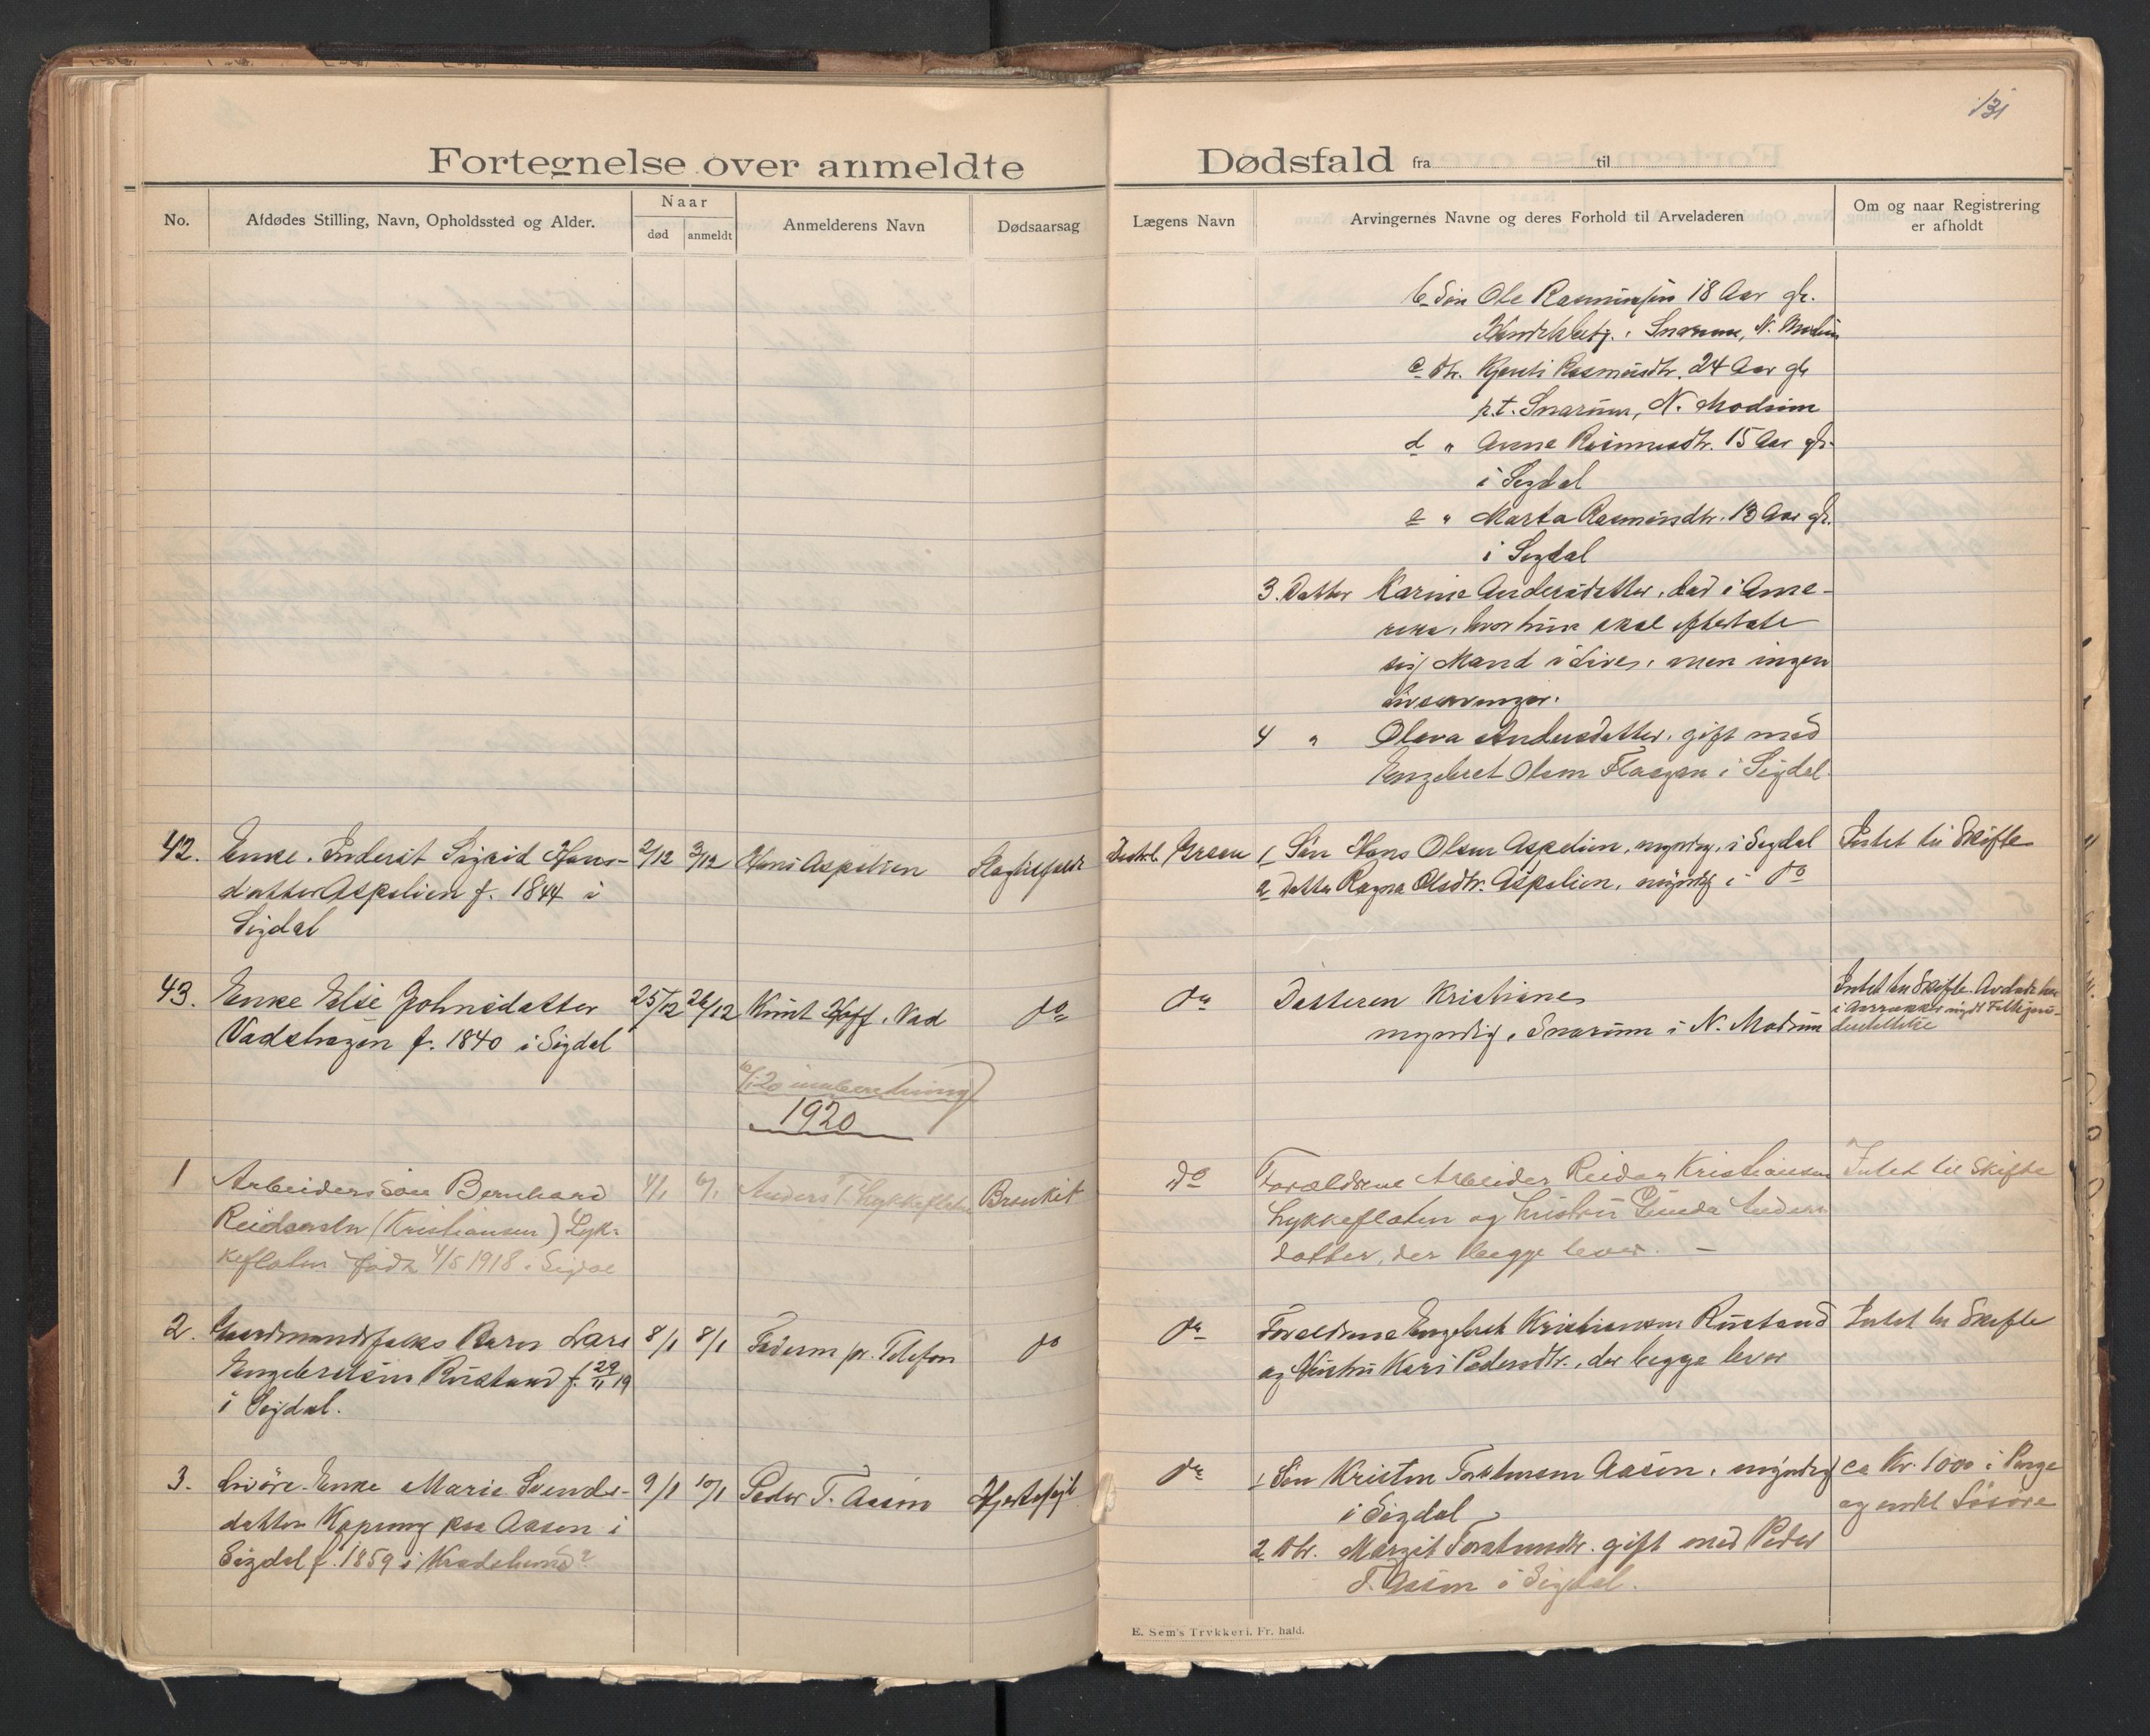 131
Fortegnelse over anmeldte Dødsfald fra til
No.
Afdødes Stilling, Navn, Opholdssted og Alder.
Naar
død
anmeldt
Anmelderens Navn
Dødsaarsag
Lægens Navn
Arvingernes Navne og deres Forhold til Arveladeren
Om og naar Registrering
er afholdt
b. Søn Ole Rasmussen 18 Aar gl.
i Snarum, N. Modum
c. Dtr. Kjersti Rasmusdtr. 24 Aar gl.
p.t. Snarum, N. Modum
d " Anne Rasmusdtr. 15 Aar gl.
i Sigdal
e " Marta Rasmusdtr. 13 Aar gl.
i Sigdal
3. Datter Karine Andersdatter, død i Ame-
rika, hvor hun skal efterlate
sig Mand i Live, men ingen
Livsarvinger.
4 " Olava Andersdatter, gift med
Engebret Olsen Flaagan i Sigdal
42. Enke, Inderst Sigrid Hans-
datter Aspelien f. 1844 i
Sigdal
2/12 3/12 Hans Aspelien Slagtilfælde
Distr.l. Green
1 Søn Hans Olsen Aspelien, myndig, i Sigdal
2 Datter Ragna Olsdtr. Aspelien, myndig i do
Intet til Skifte
43. Enke Elie Johnsdatter
Vadshagen f. 1840 i Sigdal
25/12 26/12 Knut Hoff, Vad do
do
Datteren Kristiane
myndig, Snarum i N. Modum
Intet til Skifte. Avdøde har
i Aarrækker nydt Fattigun-
derstøttelse
6/1 20 innberetning
1920
1 Arbeiders Søn Bernhard
Reidarsen (Kristiansen) Lyk-
keflaten født 4/5 1918 i Sigdal
4/1 6/1 Anders T. Lykkeflaten Bronkit
do
Forældrene Arbeider Reidar Kristiansen
Lykkeflaten og Hustru Gunda Anders
datter, der begge lever. —
Intet til Skifte
2. Gaardmandsfolks Barn Lars
Engebretsen Rustand f. 29/11 19
i Sigdal.
8/1 8/1 Faderen pr. Telefon do
do
Forældrene Engebret Kristiansen Rustand
og Hustru Kari Pedersdtr., der begge lever
Intet til Skifte
3. Livøre-Enke Marie Svends-
datter Kopseng paa Aasen i
Sigdal f. 1859 i Krødsherad?
9/1 10/1 Peder T. Aasen Hjertefeil
do
1 Søn Kristen Torstensen Aasen, myndig
i Sigdal
2 Dtr. Margit Torstensdtr. gift med Peder
T. Aasen i Sigdal.
ca Kr. 1000 i Penge
og endel Løsøre
E. Sem's Trykkeri. Fr. hald.